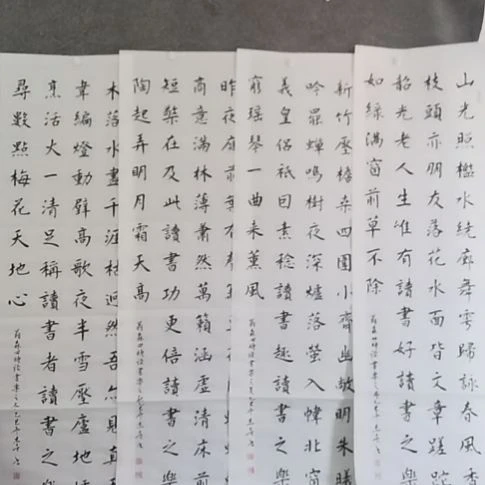 山光照檻水繞廊舞雩歸詠春風香
枝頭亦朋友落花水面皆文章蹉跎
韶光老人生唯有讀書好讀書之樂
如綠滿窗前草不除
新竹壓檐桑四圍小齋幽敞明朱曦
吟罷蟬鳴樹夜深爐落螢入幃北窗
義皇侶祇因素稔讀書趣讀書之樂
窮瑤琴一曲来薰風
昨夜庭前葉有
商意滿林薄蕭然萬籟涵虛清床前
短檠在及此讀書功更倍讀書之樂
陶起弄明月霜天高
木落水盡千涯枯迥然吾亦見真
韋編燈動壁高歌夜半雪壓廬地
烹活火一清足稱讀書者讀書之
尋數點梅花天地心